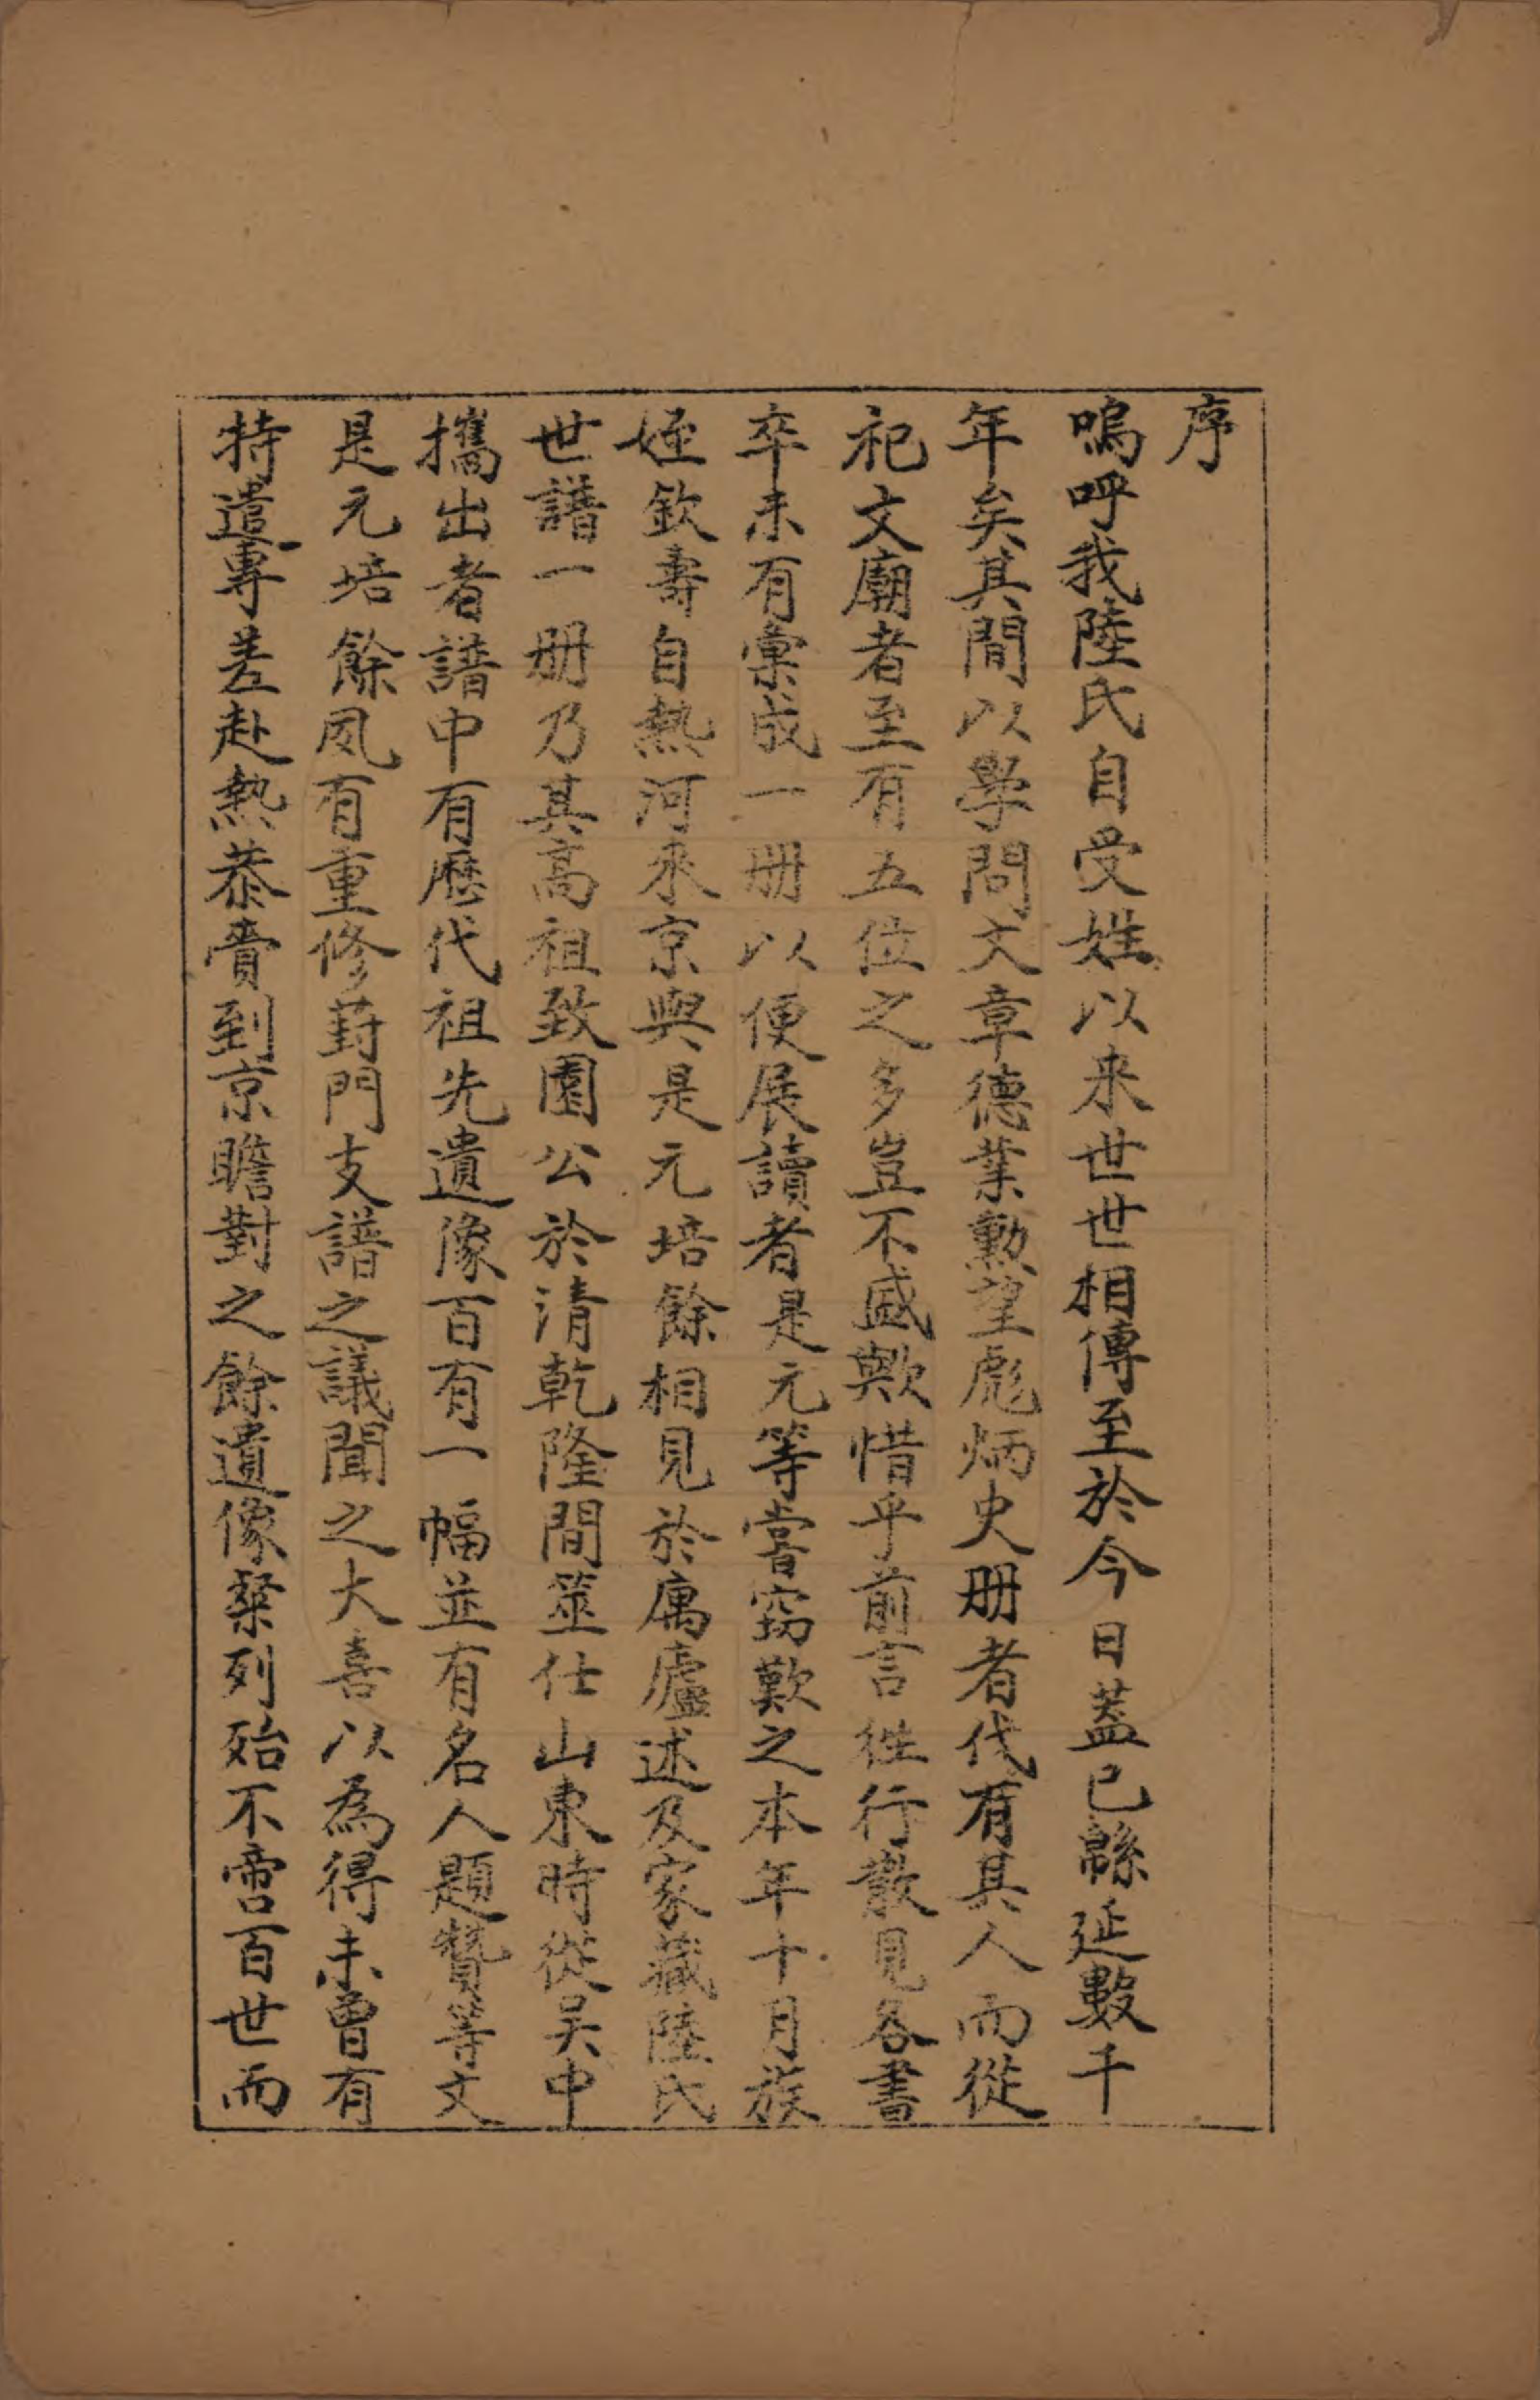 序
嗚呼我陸氏自受姓以来世世相傳至於今日蓋已緜延數千
年矣其間以學問文章德業勳望彪炳史册者代有其人而從
祀文廟者至有五位之多豈不盛歟惜乎前言徃行散見各書
卒未有彙成一册以便展讀者是元等嘗竊歎之本年十月族
姪欽壽自熱河來京與是元培餘相見於寓廬述及家藏陸氏
世譜一册乃其高祖致園公於清乾隆間筮仕山東時從吴中
攜出者譜中有歷代祖先遺像百有一幅並有名人題贊等文
是元培餘夙有重修葑門支譜之議聞之大喜以為得未曾有
特遣專差赴熱恭賫到京瞻對之餘遺像粲列殆不啻百世而